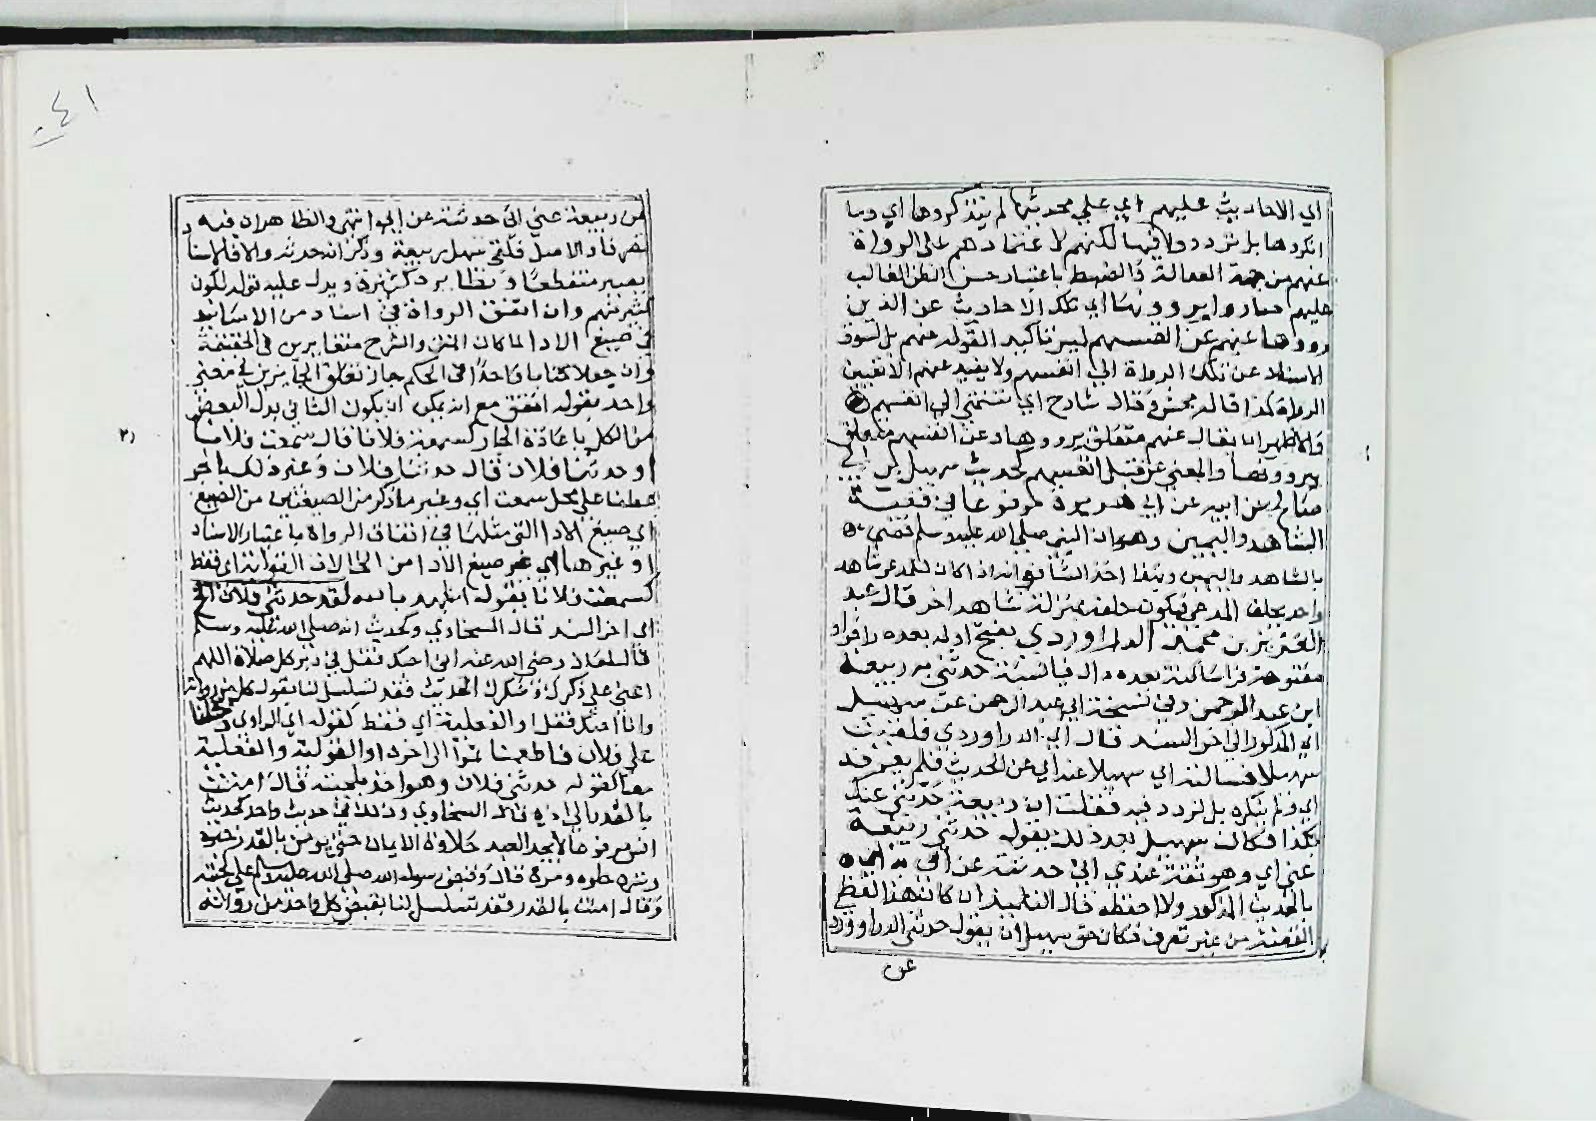 اي الاحاديث عليهم اي علي محدثها لم يتذكروها اي وما
انكروها بل ترددوا فيها لكنهم لاعتمادهم علي الرواة
عنهم من جهة العدالة والضبط باعتبار حسن الظن الغالب
عليهم صاروا يروونها اي تلك الاحاديث عن الذين
رووها عنهم عن انفسهم ليس تاكيد القوله عنهم بل لسوق
الاسناد عن تلك الرواة الي انفسهم ولا يفيد عنهم الا تعيين
الرواة كذا قاله محش وقال شارح اي تنتهي الي انفسهم
والاظهر ان يقال عنهم متعلق برووها وعن انفسهم متعلق
بيروونها والمعني عن قبل انفسهم كحديث سهيل بن ابي
صالح عن ابيه عن ابي هريرة مرفوعا في قصة
الشاهد واليمين وهو ان النبي صلي الله عليه وسلم قضي
بالشاهد واليمين وبهذا اخذ الشافعي انه اذا كان للمدعي شاهد
واحد يحلف المدعي فيكون حلفه بمنزلة شاهد اخر قال عبد
العزيز بن محمد الدراوردي بفتح اوله بعده را فواو
مفتوحة فرا ساكنة بعده دال فيا لنسبة حدثني به ربيعة
ابن عبد الرحمن وفي نسخة ابي عبد الرحمن عن سهيل
اي المذكور الي اخر السند قال اي الدراوردي فلقيت
سهيلا فسالته اي سهيلا عنه اي عن الحديث فلم يعرفه
اي ولم ينكره بل تردد فيه فقلت ان ربيعة حدثني عنك
بكذا فكان سهيل بعد ذلك يقول حدثني ربيعة
عني اي وهو ثقة عندي اني حدثته عن ابي به اي
بالحديث المذكور ولا احفظه قال التلميذ ان كان هذا لفظ
القصة من غير تصرف فكان حق سهيل ان يقول حدثني الدراوردي
عن
٤١
عن ربيعة عني اني حدثته عن ابي انتهي والظاهر ان فيه
تصرفا والاصل فلقي سهل ربيعة وذكر انه حدثه والا فالاسناد
يصير منقطعا ونظايره كثيرة ويدل عليه قوله لكون
كثير منهم وان اتفق الرواة في اسناد من الاسانيد
في صيغ الادا لما كان المتن والشرح متغايرين في الحقيقة
وان جعلا كتابا واحدا في الحكم جاز تعلق الجارين في معني
واحد بقوله اتفق مع انه يمكن ان يكون الثاني بدل البعض
من الكل باعادة الجار كسمعت فلانا قال سمعت فلانا
او حدثنا فلان قال حدثنا فلان وغير ذلك بالجر
عطفا علي محل سمعت اي وغير ما ذكر من الصيغتين من الصيغ
اي صيغ الادا التي مثلها في اتفاق الرواة باعتبار الاسناد
او غيرها اي غير صيغ الادا من الحالات القولية اي فقط
كسمعت فلانا يقول اشهد بالله لقد حدثني فلان الخ
الي اخر السند قال السخاوي وكحديث انه صلي الله عليه وسلم
قال لمعاذ رضي الله عنه اني احبك فقل في دبر كل صلاة اللهم
اعني علي ذكرك وشكرك الحديث فقد تسلسل لنا بقول كل من رواته
وانا احبك فقل او الفعلية اي فقط كقوله اي الراوي دخلنا
علي فلان فاطعمنا تمرا الي اخره او القولية والفعلية
معا كقوله حدثني فلان وهو اخذ بلحيته قال امنت
بالقدر الي اخره قال السخاوي وذلك في حديث واحد كحديث
انس مرفوعا لا يجد العبد حلاوة الايمان حتي يؤمن بالقدر خيره
وشره حلوه ومره قال وقبض رسول الله صلي الله عليه وسلم علي لحيته
وقال امنت بالقدر فقد تسلسل لنا بقبض كل واحد من رواته